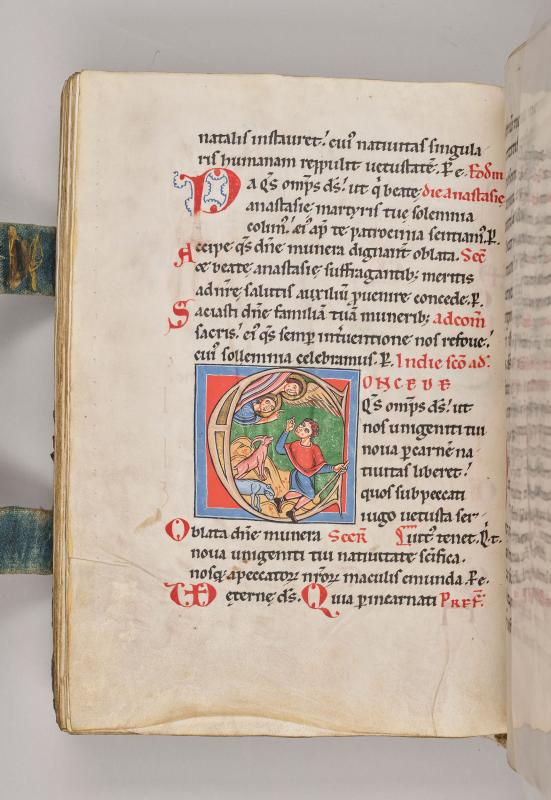 natalis instauret. eui natiuitas singula
ris humanam reppulit uetustatē. P e. Eodm
Da q̄s omps ds. ut q̇ beate die anastasie
anastasie martyris tue solemnia
colim. ei ap te patrocinia sentiam. P.
Accipe q̄s dn̄e munera dignant oblata. Sec̄
ce beate anastasie suffragantib; meritis
ad nrē salutis auxiliū puenire concede. P.
Saciasti dn̄e familiā tuā munerib; ad com̄
sacris. ei q̄s semp int̄uentione nos refoue.
cui sollemnia celebramus. P. In die sc̄o ad.
CONCEDE
Q̄s omps ds. ut
nos unigeniti tui
noua p carnē na
tiuitas liberet.
quos sub peccati
iugo uetusta ser
Oblata dn̄e munera Secr̄ uit tenet. P. t.
noua unigeniti tui natiuitate sc̄ifica.
nosq; a peccatoꝝ nr̄oꝝ maculis emunda. P e
eterne ds. Quia p incarnati Pref̄.